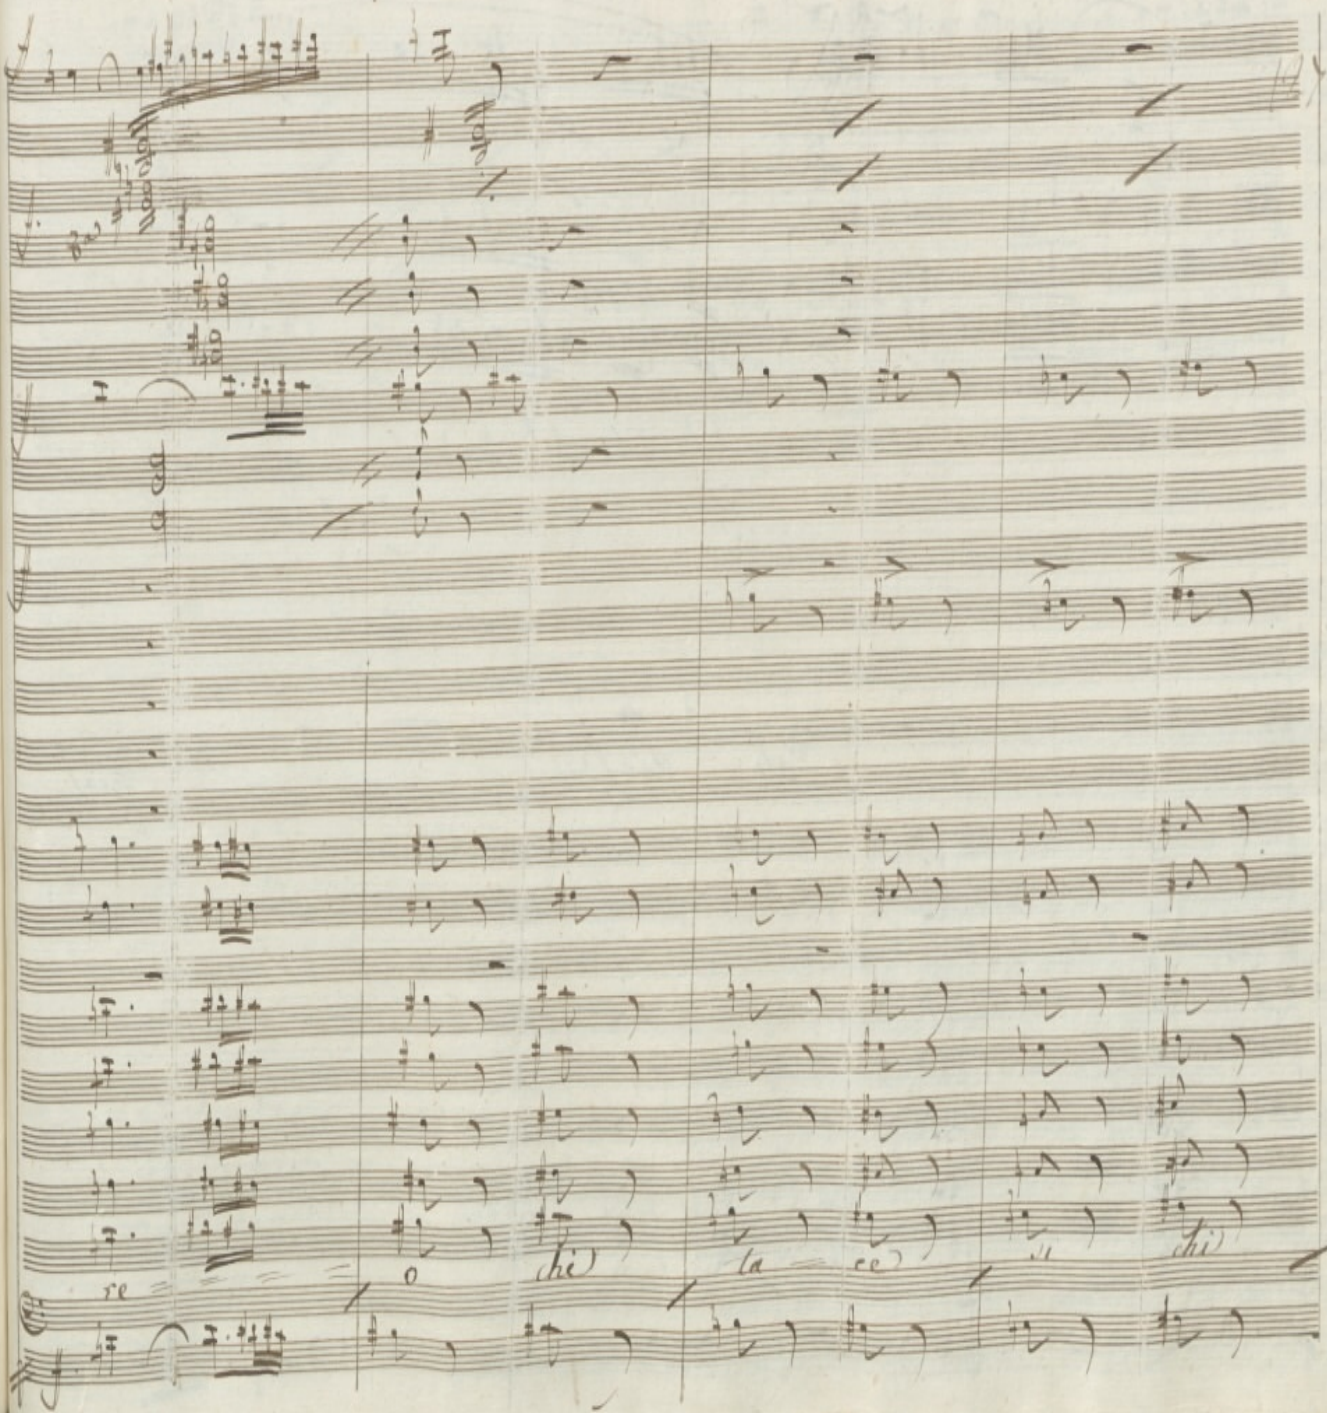 re o chi ta ce si chi